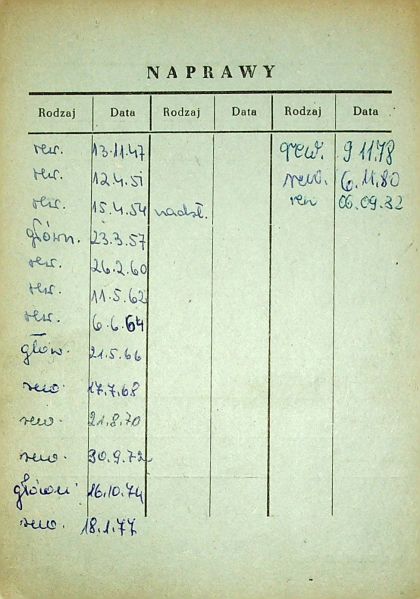 NAPRAWY
Rodzaj Data Rodzaj Data Rodzaj Data
rew. 13.11.47 rew. 9 11.78
rew. 12.4.51 rew. 6.11.80
rew. 15.4.54 nadzł. rew 06.09.82
główn. 23.3.57
rew. 26.2.60
rew. 11.5.62
rew. 6.6.64
głów. 21.5.66
rew. 17.7.68
rew. 21.8.70
rew. 30.9.72
główn. 16.10.74
rew. 18.1.77